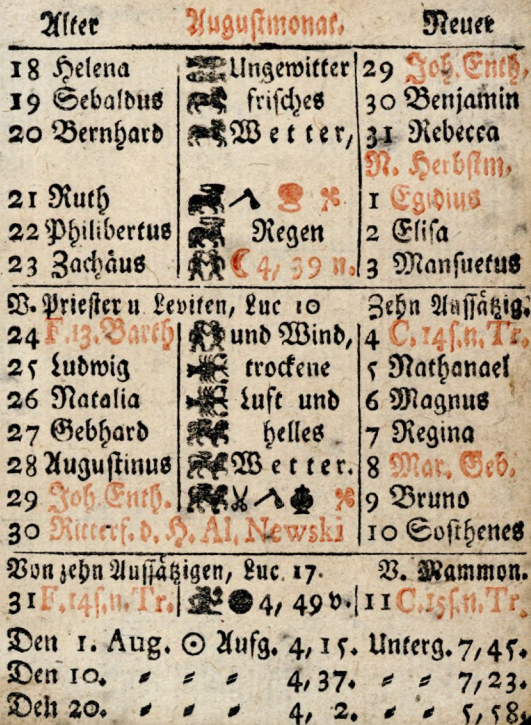 Alter Augustmonat. Neuer
18 Helena Ungewitter 29 Joh. Enth.
19 Sebaldus frisches 30 Benjamin
20 Bernhard Wetter, 31 Rebecca
N. Herbstm.
21 Ruth 1 Egidius
22 Philibertus Regen 2 Elisa
23 Zachäus ☾ 4, 39 n. 3 Mansuetus
V. Priester u Leviten, Luc 10 Zehn Aussätzig.
24 F. 13. Barth und Wind, 4 C. 14 s. n. Tr.
25 Ludwig trockene 5 Nathanael
26 Natalia Luft und 6 Magnus
27 Gebhard helles 7 Regina
28 Augustinus Wetter. 8 Mar. Geb.
29 Joh. Enth. 9 Bruno
30 Ritterf. d. H. Al. Newski 10 Sosthenes
Von zehn Aussätzigen, Luc. 17. V. Mammon.
31 F. 14 s. n. Tr. ● 4, 49 v. 11 C. 15 s. n. Tr.
Den 1. Aug. ☉ Aufg. 4, 15. Unterg. 7, 45.
Den 10. 4, 37. 7, 23.
Den 20. 4, 2. 5, 58.